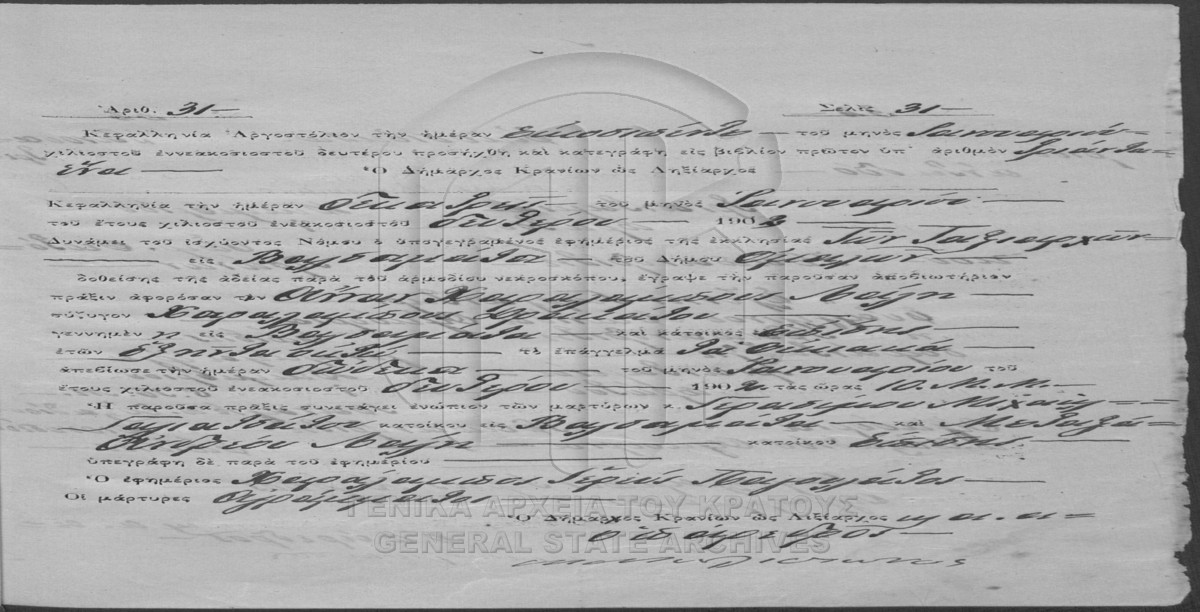 Ἀριθ. 31 — Σελὶς 31 —
Κεφαλληνία Ἀργοστόλιον τὴν ἡμέραν εἰκοστὴν πέμπτην — τοῦ μηνὸς Ἰανουαρίου
χιλιοστοῦ ἐννεακοσιοστοῦ δευτέρου προσήχθη καὶ κατεγράφη εἰς βιβλίον πρῶτον ὑπ' ἀριθμὸν τριάντα
ἕνα — Ὁ Δήμαρχος Κρανίων ὡς Ληξίαρχος
Κεφαλληνία τὴν ἡμέραν δέκα τρεῖς — τοῦ μηνὸς Ἰανουαρίου —
τοῦ ἔτους χιλιοστοῦ ἐνεακοσιοστοῦ δευτέρου — 1902 —
Δυνάμει τοῦ ἰσχύοντος Νόμου ὁ ὑπογεγραμένος ἐφημέριος τῆς ἐκκλησίας Τῶν Ταξιαρχῶν
— εἰς Βαλσαμάτα — τοῦ Δήμου Ὁμαλῶν —
δοθείσης τῆς ἀδείας παρὰ τοῦ ἁρμοδίου νεκροσκόπου, ἔγραψε τὴν παροῦσαν ἀποβιωτήριον
πρᾶξιν ἀφορῶσαν τὴν Χαραλάμπους —
σύζυγον Χαραλάμπους —
γεννημέν η εἰς Βαλσαμάτα — καὶ κάτοικος ἐπίσης —
ἐτῶν ἑξήντα — τὸ ἐπάγγελμα τὰ οἰκιακά —
ἀπεβίωσε τὴν ἡμέραν δώδεκα — τοῦ μηνὸς Ἰανουαρίου τοῦ
ἔτους χιλιοστοῦ ἐνεακοσιοστοῦ δευτέρου — 1902. τὰς ὥρας 10. Μ.Μ. —
Ἡ παροῦσα πρᾶξις συνετάγει ἐνώπιον τῶν μαρτύρων κ. Γερασίμου Μιχαὴλ
κατοίκου εἰς Βαλσαμάτα — καὶ Μεταξᾶ
— κατοίκου ἐπίσης. —
ὑπεγράφη δὲ παρὰ τοῦ ἐφημερίου —
Ὁ ἐφημέριος Χαραλάμπος Ἱερεὺς —
Οἱ μάρτυρες ἀγράμματοι —
ΓΕΝΙΚΑ ΑΡΧΕΙΑ ΤΟΥ ΚΡΑΤΟΥΣ
Ὁ Δήμαρχος Κρανίων ὡς Λιξίαρχος
GENERAL STATE ARCHIVES